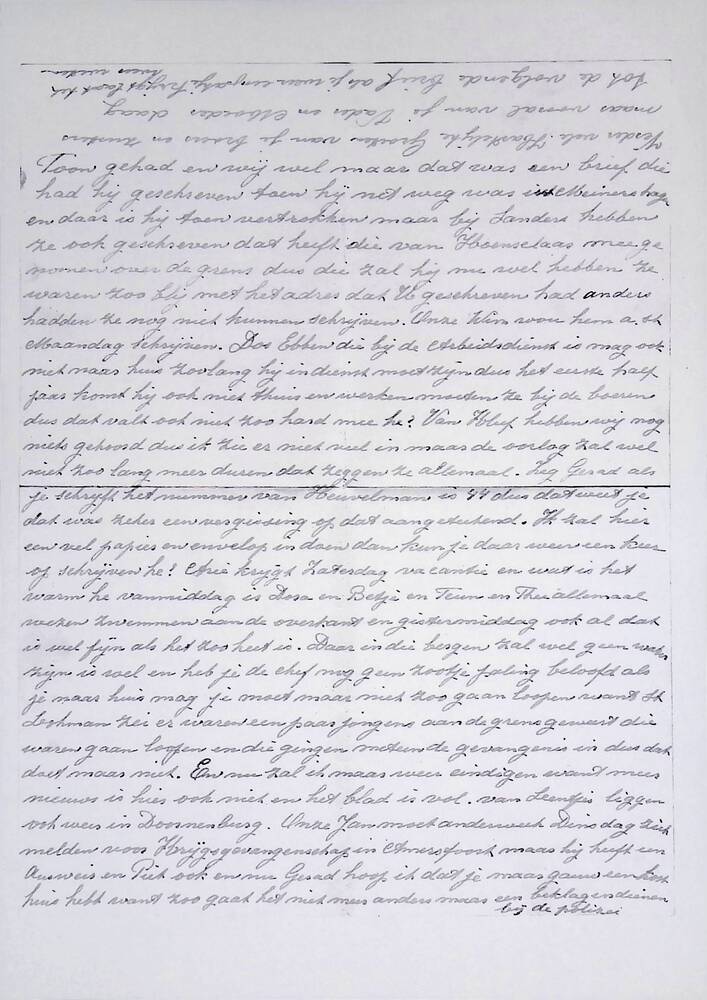 Toon gehad en wij wel maar dat was een brief die
had hij geschreven toen hij net weg was uit Meinershage
en daar is hij toen vertrokken maar bij Sanders hebben
ze ook geschreven dat heeft die van Hoenselaar meege
nomen over de grens dus die zal hij nu wel hebben ze
waren zoo blij met het adres dat U geschreven had anders
hadden ze nog niet kunnen schrijven. Onze Wim wou hem a. st
Maandag schrijven. Dos Ebben die bij de Arbeidsdienst is mag ook
niet naar huis zoolang hij in dienst moet zijn dus het eerste half
jaar komt hij ook niet thuis en werken moeten ze bij de boeren
dus dat valt ook niet zoo hard mee he? Van hebben wij nog
niets gehoord dus ik zie er niet veel in maar de oorlog zal wel
niet zoo lang meer duren dat zeggen ze allemaal. Zeg Gerad als
je schrijft het nummer van Heuvelman is 44 dus dat weet je
dat was zeker een vergissing op dat aangetekend. Ik zal hier
een vel papier en envelop in doen dan kun je daar weer een keer
op schrijven he! Arie krijgt Zaterdag vacantie en wat is het
warm he vanmiddag is Dora en Betje en Teun en Thee allemaal
wezen zwemmen aan de overkant en gistermiddag ook al dat
is wel fijn als het zoo heet is. Daar in die bergen zal wel geen water
zijn is wel en heb je de chef nog geen zootje paling beloofd als
je naar huis mag je moet maar niet zoo gaan loopen want St
Lochman zei er waren een paar jongens aan de grens geweest die
waren gaan loopen en die gingen meteen de gevangenis in dus dat
doet maar niet. En nu zal ik maar weer eindigen want meer
nieuws is hier ook niet en het blad is vol. van Leentjes liggen
ook weer in Doornenburg. Onze Jan moet anderweek Dinsdag zich
melden voor Krijgsgevangenschap in Amersfoort maar hij heeft een
Ausweis en Piet ook en nu Gerad hoop ik dat je maar gauw een
huis hebt want zoo gaat het niet meer anders maar een Beklag indienen
bij de polizei
Verder vele Hartelijke Groeten van je broers en zusters
maar vooral van je Vader en Moeder daag
tot de volgende brief als je weer een pakje krijgt laat het
weer weten